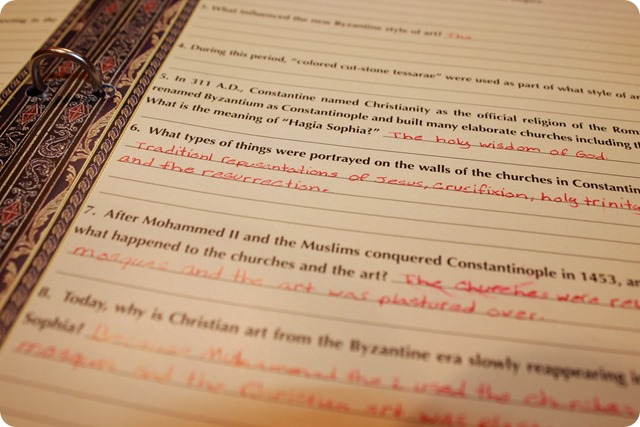 meeting in the
3. What influenced the new Byzantine style of art? The
4. During this period, "colored cut-stone tessarae" were used as part of what style of ar
5. In 311 A.D., Constantine named Christianity as the official religion of the Rom
renamed Byzantium as Constantinople and built many elaborate churches including th
What is the meaning of "Hagia Sophia?" The holy wisdom of God.
6. What types of things were portrayed on the walls of the churches in Constantin
Traditionl repusentations of Jesus, crucifixion, holy trinity
and the resurrection.
7. After Mohammed II and the Muslims conquered Constantinople in 1453, an
what happened to the churches and the art? The churches were
mosques and the art was plastured over.
8. Today, why is Christian art from the Byzantine era slowly reappearing
Sophia? Because Mohammed the 2 used the churches
mosques and the Christian art was